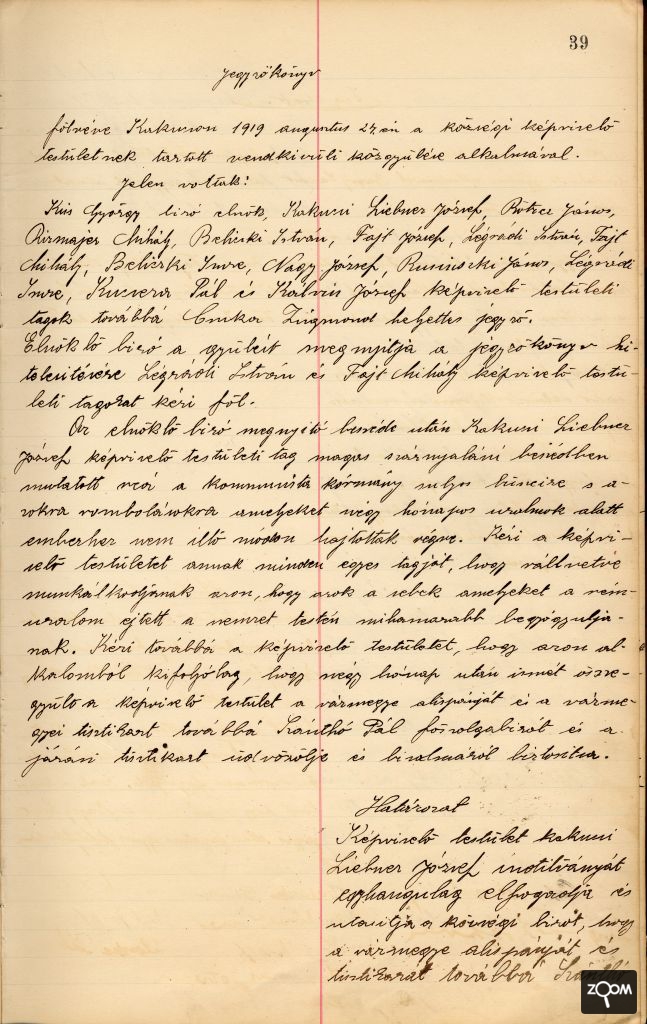 39
Jegyzőkönyv
fölvéve Kakucson 1919 augusztus 27 én a községi képviselő
testületnek tartott rendkivüli közgyülése alkalmával.
Jelen voltak:
Kis György biró elnök, Kakucsi Liebner József, Rotter János,
Rizmajer Mihály, Beliczki István, Fajt József, Légrádi István, Fajt
Mihály, Beliczki Imre, Nagy József, Ruzsicski János, Légrádi
Imre, Kucsera Pál és Kálvin József képviselő testületi
tagok továbbá Csuka Zsigmond helyettes jegyző.
Elnöklő biró a gyülést megnyitja a jégyzőkönyv hi-
telesitésére Légrádi István és Fajt Mihály képviselő testü-
leti tagokat kéri föl.
Az elnöklő biró megnyitó beszéde után Kakucsi Liebner
József képviselő testületi tag magas szárnyalásu beszédben
mutatott reá a kommunista kormány sulyos büneire s a-
zokra rombolásokra amelyeket négy hónapos uralmok alatt
emberhez nem illő módon hajtottak végre. Kéri a képvi-
selő testületet annak minden egyes tagját, hogy vállvetve
munkálkodjanak azon, hogy azok a sebek amelyeket a rém-
uralom ejtett a nemzet testén mihamarabb begyógyulja-
nak. Kéri továbbá a képviselő testületet, hogy azon al-
kalomból kifolyólag, hogy négy hónap után ismét össze-
gyült a képviselő testület a vármegye alispánját és a várme-
gyei tisztikart továbbá Szánthó Pál főszolgabirót és a
járási tisztikart üdvözölje és bizalmáról biztositsa.
Határozat
Képviselő testület kakucsi
Liebner József inditványát
egyhangulag elfogadja és
utasitja a községi birót, hogy
a vármegye alispánját és
tisztikarát továbbá Szánthó
ZOOM